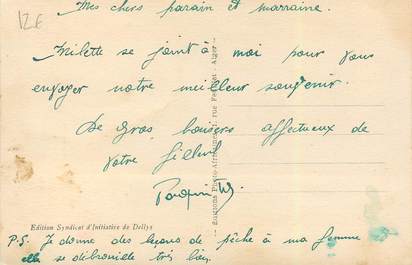 12€
Mes chers parain et marraine.
Milette se joint à moi pour vous
envoyer notre meilleur souvenir.
De gros baisers affectueux de
votre filleul
Edition Syndicat d'Initiative de Dellys
P.S. Je donne des leçons de pêche à ma femme
elle se débrouille très bien.
Editions Photo-Africaines, 1, rue - Alger -